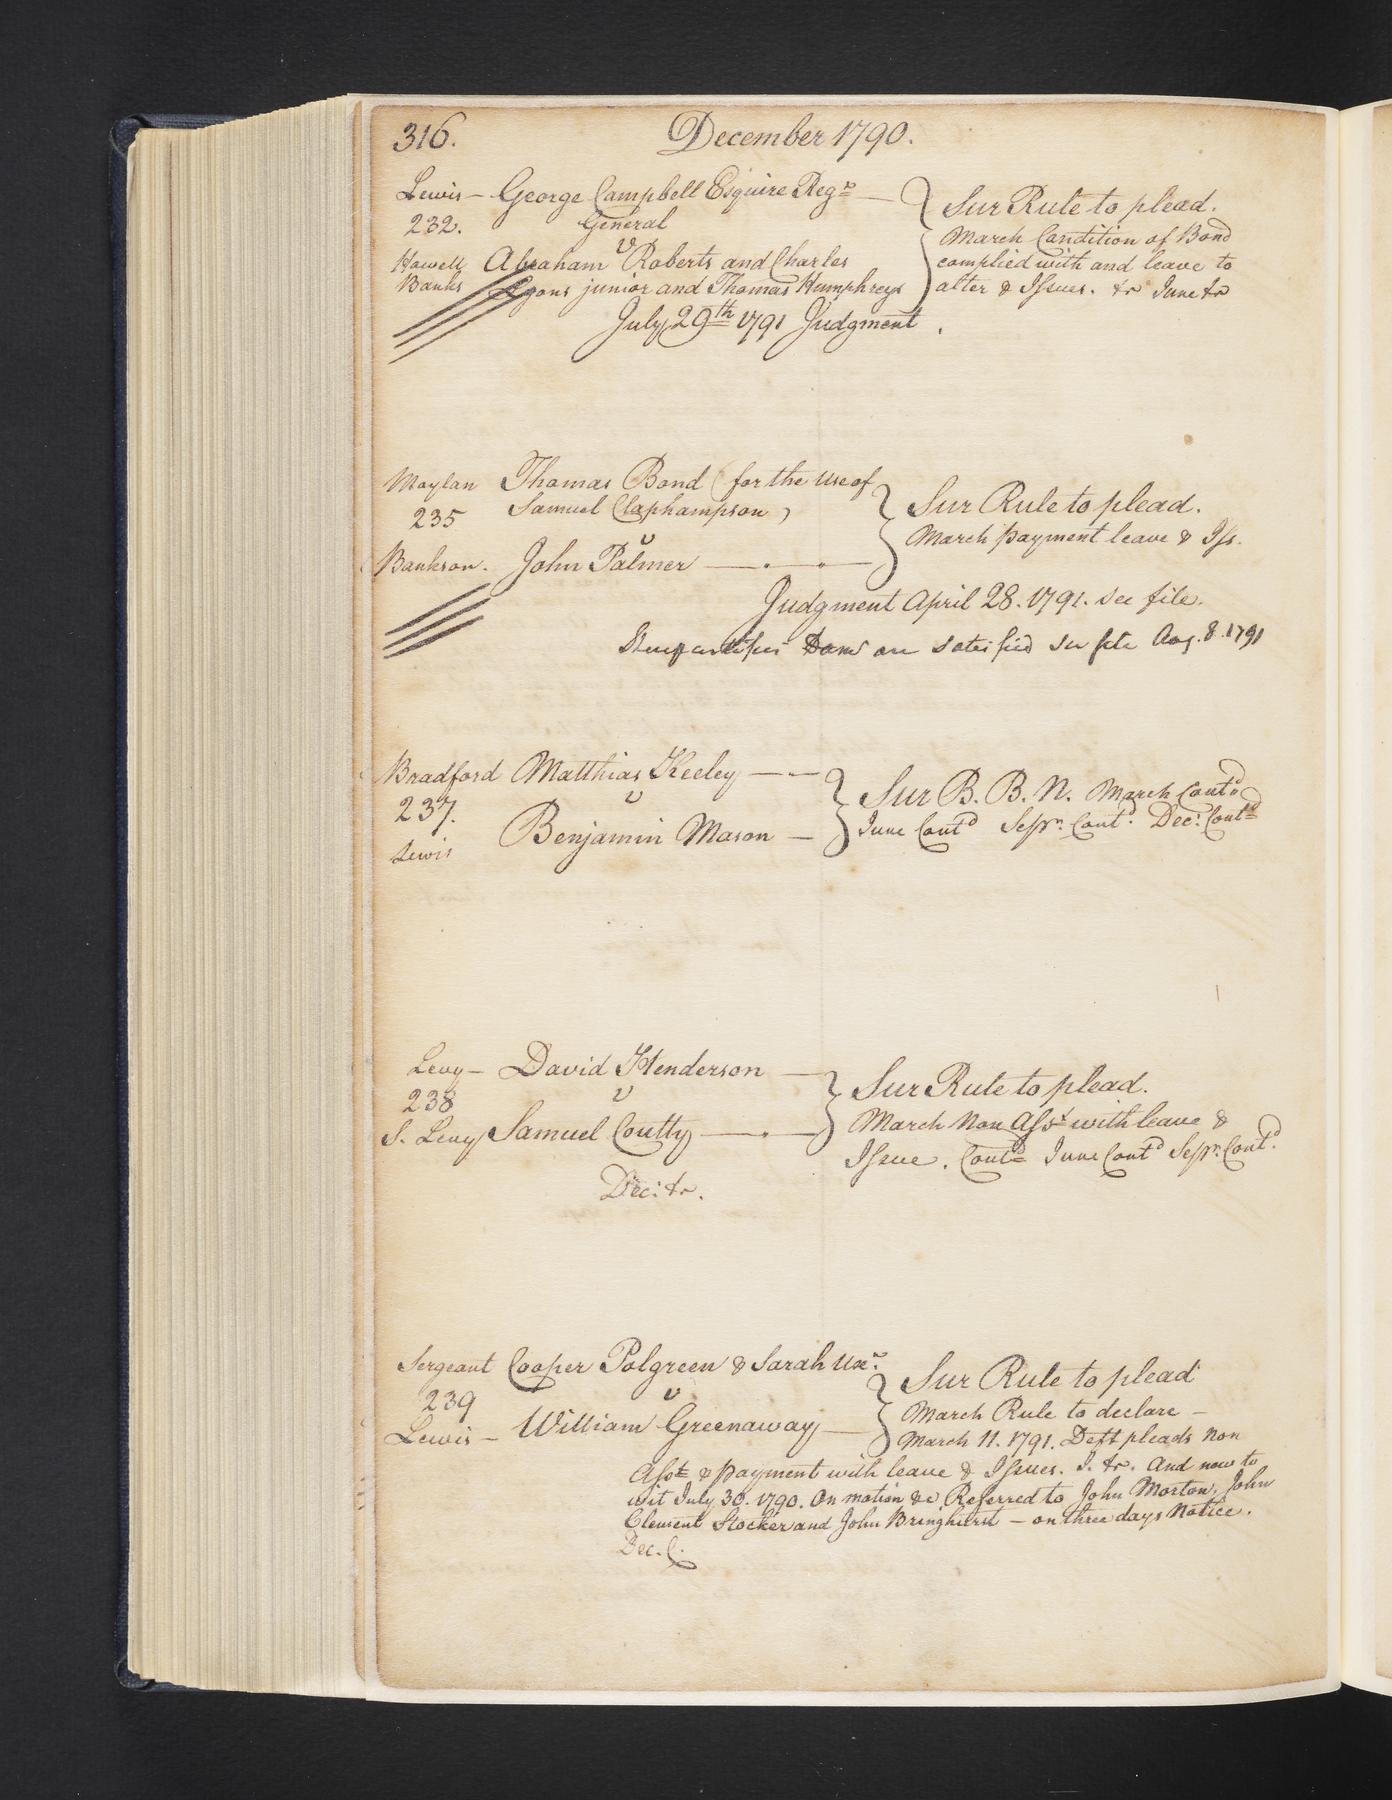 316. December 1790.
Lewis — George Campbell Esquire Regr
232. General
v
Howell Abraham Roberts and Charles
Banks Lyons junior and Thomas Humphreys
Sur Rule to plead.
March Condition of Bond
complied with and leave to
alter & Issues. tr June tr
July 29th 1791 Judgment.
Moylan Thomas Bond (for the use of
235 Samuel Claphampson)
v
Bankson. John Palmer
Sur Rule to plead.
March payment leave & Iss.
Judgment April 28. 1791. see file.
are satisfied see file Aug. 8. 1791
Bradford Matthias Keeley
237. v
Lewis Benjamin Mason
Sur B. B. N. March Contd
June Contd Sepr. Contd. Dec: Contd
Levy — David Henderson
238 v
S. Levy Samuel Coutty
Sur Rule to plead.
March Non Asst with leave &
Issue. Contd June Contd Sepr. Contd.
Dec: tr.
Sergeant Cooper Polgreen & Sarah Uxr.
239 v
Lewis — William Greenaway
Sur Rule to plead
March Rule to declare —
March 11. 1791. Deft pleads Non
Asst & payment with leave & Issues. J. tr. And now to
wit July 30. 1790. On motion &c Referred to John Morton, John
Clement Stocker and John Bringhurst — on three days Notice.
Dec. C.